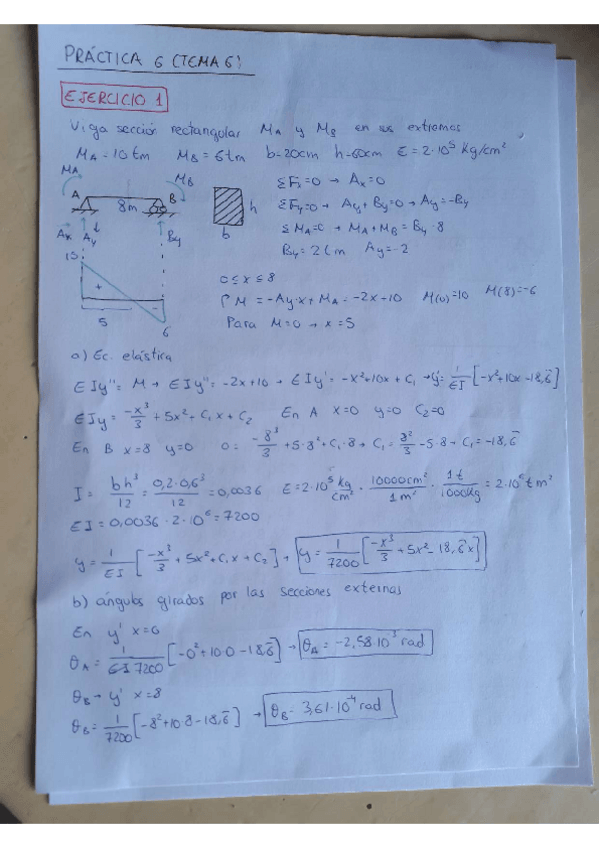 PRÁCTICA 6 (TEMA 6)
EJERCICIO 1
Viga sección rectangular MA y MB en sus extremos,
MA = 10 tm MB = 6 tm b=20cm h=60cm E = 2·10⁵ kg/cm²
MA
MB
A
B
8m
Ax
Ay
By
h
b
ΣFx=0 → Ax=0
ΣFy=0 → Ay + By=0 → Ay=-By
ΣMA=0 → MA + MB = By · 8
By = 2 t m Ay=-2
15
+
5
6
0 ≤ x ≤ 8
M = -Ay·x + MA = -2x+10 M(0)=10 M(8)=-6
Para M=0 → x=5
a) Ec. elástica
EIy'' = M → EIy'' = -2x+10 → EIy' = -x²+10x + C₁ → y' = 1/EI [-x²+10x-18,6̅]
EIy = -x³/3 + 5x² + C₁x + C₂ En A x=0 y=0 C₂=0
En B x=8 y=0 0 = -8³/3 + 5·8² + C₁·8 → C₁ = 8²/3 - 5·8 → C₁ = -18,6̅
I = bh³/12 = 0,2·0,6³/12 = 0,0036 E = 2·10⁵ kg/cm² · 10000cm²/1m² · 1t/1000kg = 2·10⁶ t m²
EI = 0,0036 · 2·10⁶ = 7200
y = 1/EI [-x³/3 + 5x² + C₁x + C₂] → y = 1/7200 [-x³/3 + 5x² - 18,6̅x]
b) ángulos girados por las secciones externas
En y' x=0
θA = 1/7200 [-0²+10·0-18,6̅] → θA = -2,58·10⁻³ rad
θB → y' x=8
θB = 1/7200 [-8²+10·8-18,6̅] → θB = -3,61·10⁻⁴ rad